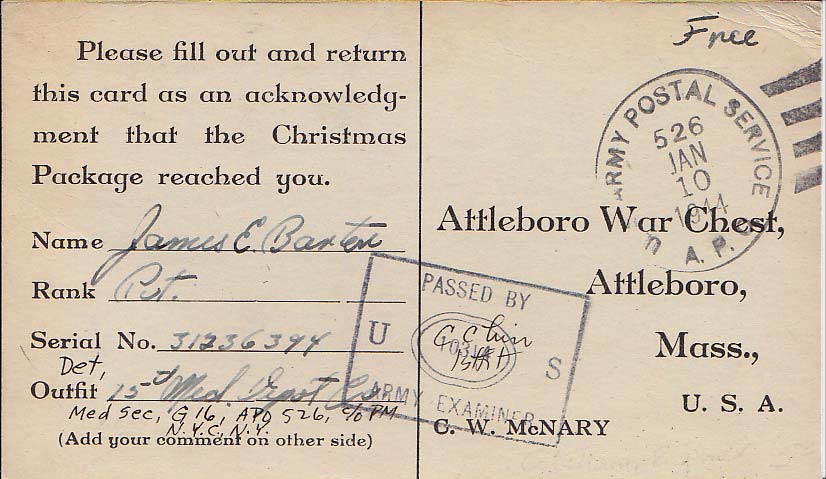 Please fill out and return
this card as an acknowledg-
ment that the Christmas
Package reached you.
Name James E. Barten
Rank Pvt.
Serial No. 31236394
Det,
Outfit 15th Med Depot Co
Med Sec, G 16, APO 526, c/o PM
N.Y.C, N.Y.
(Add your comment on other side)
Free
ARMY POSTAL SERVICE
526
JAN
10
1944
A. P. O.
Attleboro War Chest,
Attleboro,
Mass.,
U. S. A.
C. W. McNARY
PASSED BY
U S
ARMY EXAMINER